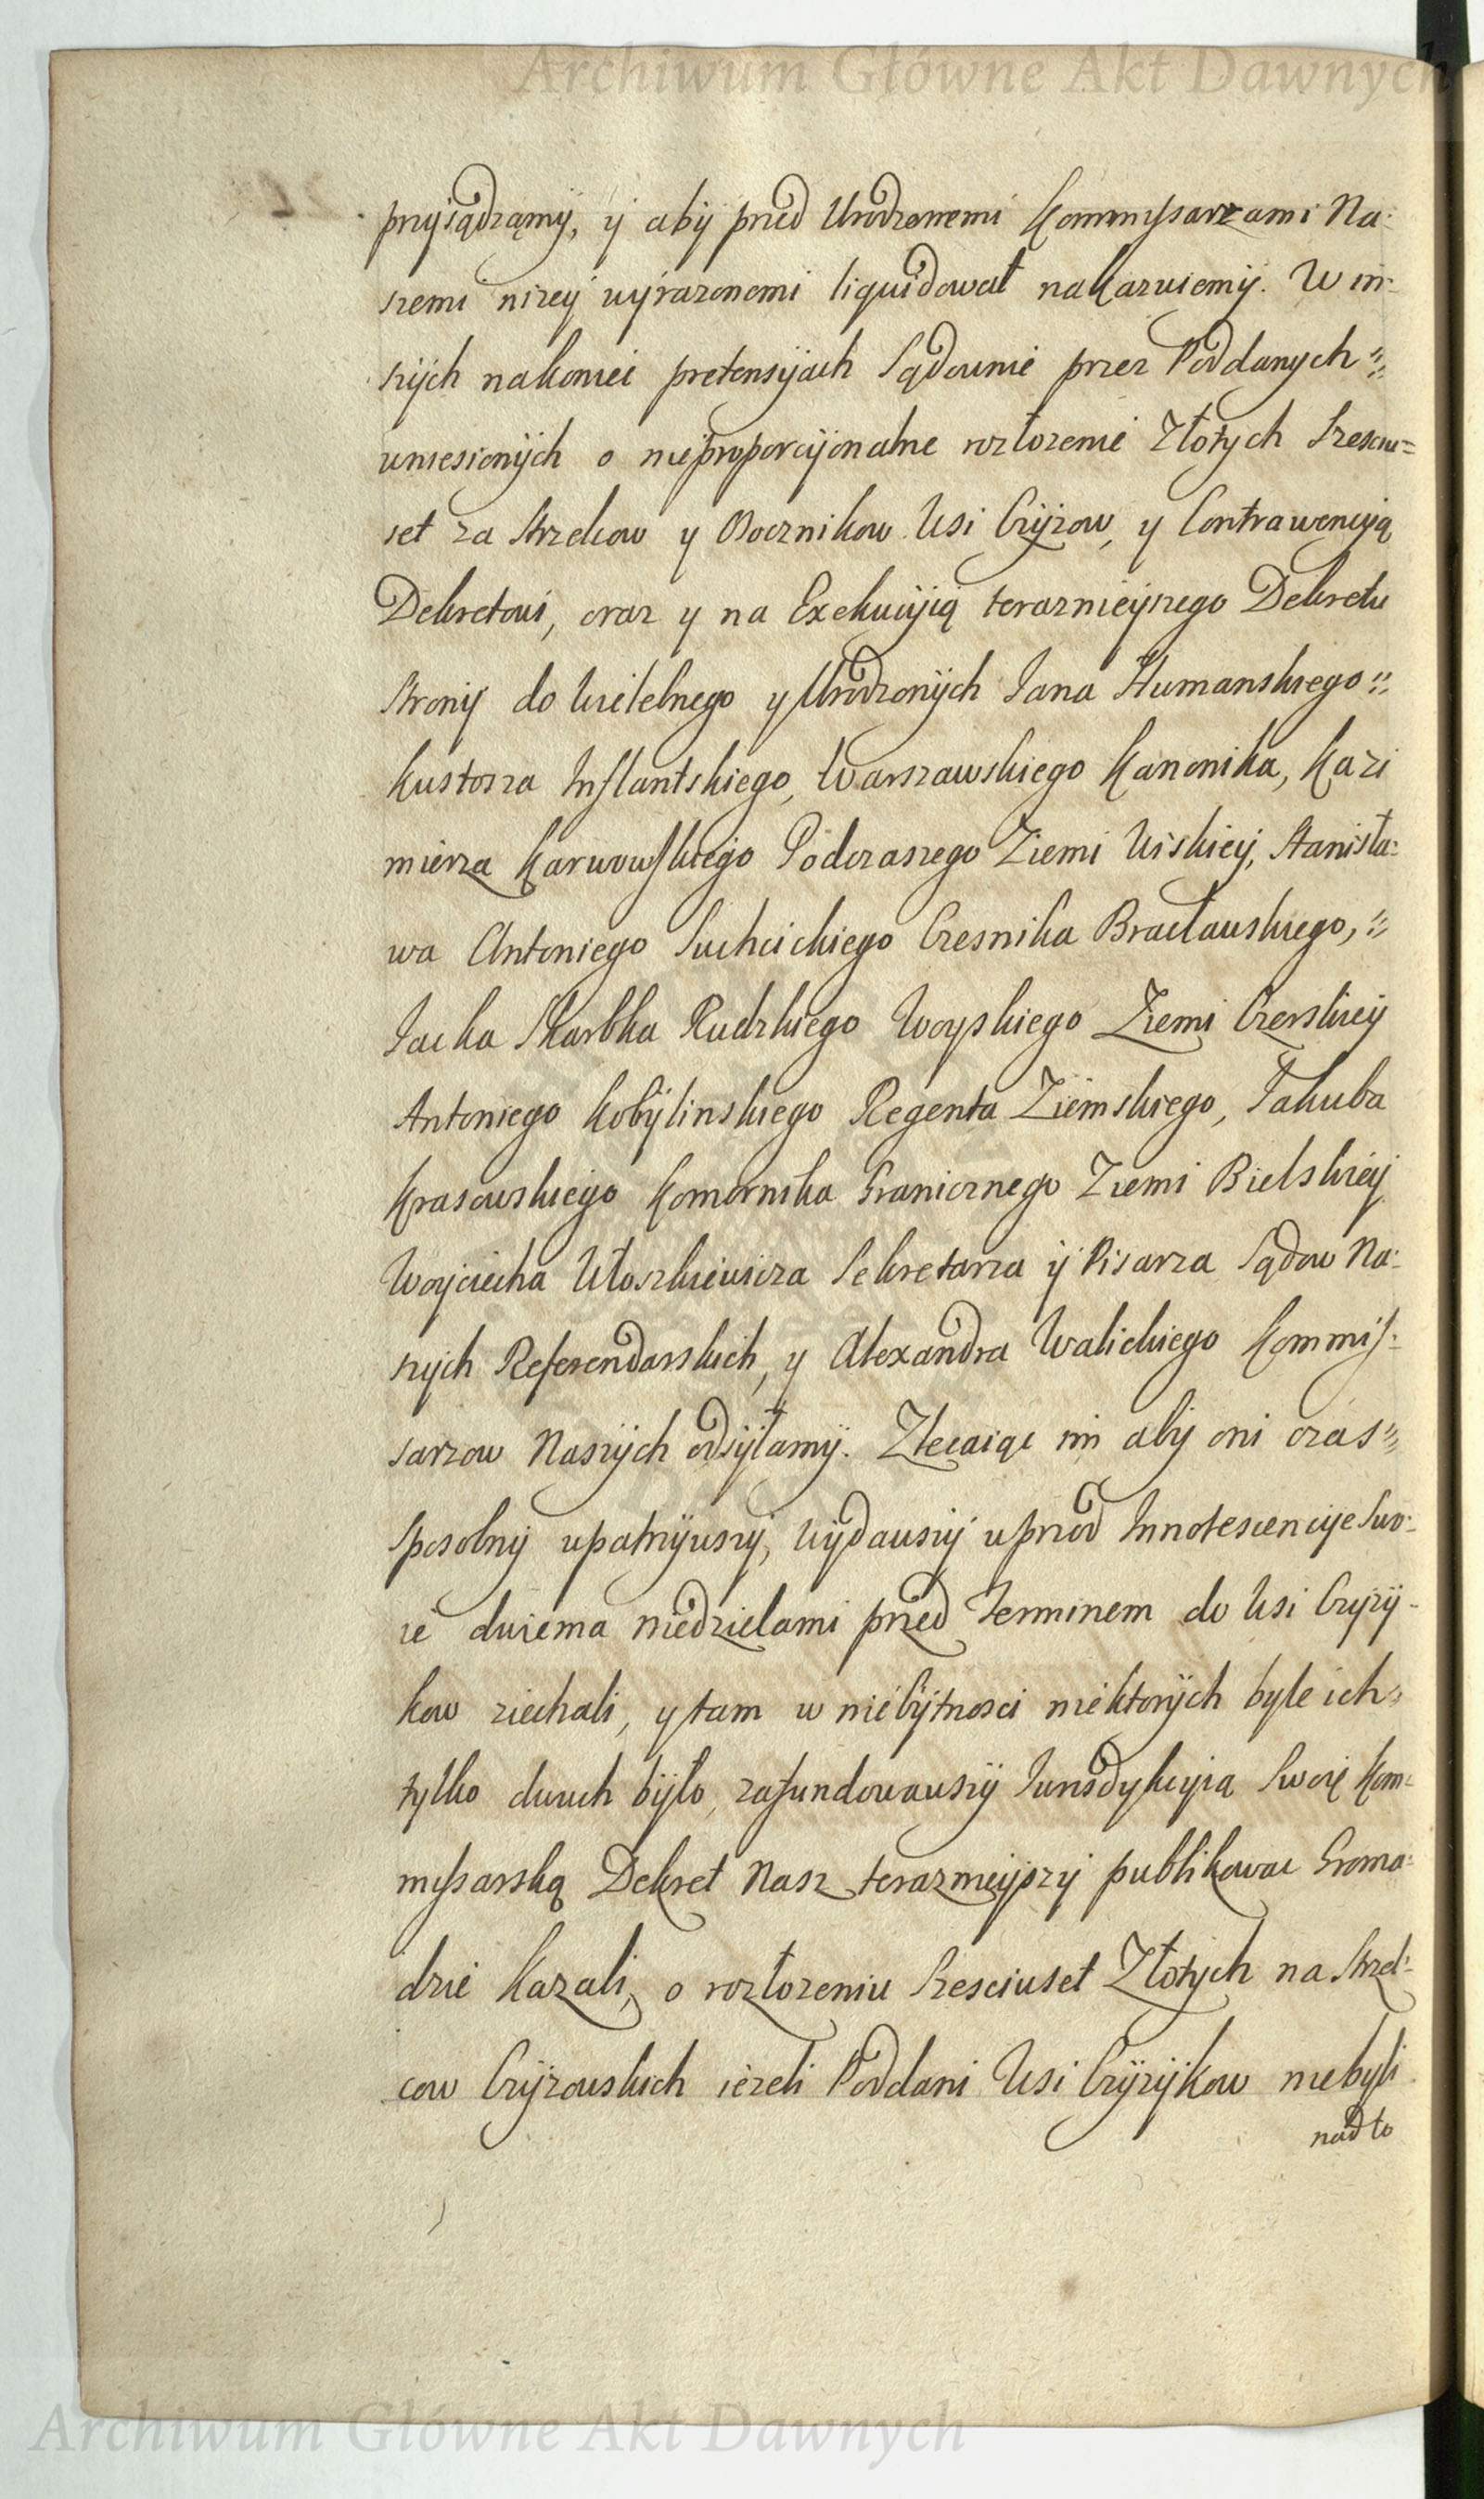 Archiwum Główne Akt Dawnych
przysądzamy, y aby przed Urodzonemi Kommyssarzami Na-
szemi nizey wyrazonemi liquidował nakazuiemy. W in-
szych nakoniec pretensyiach Sądownie przez Poddanych
wniesionych o nieproporcyonalne rozłozenie Złotych Szesciu=
set za Strzelcow y Osocznikow Wsi Czyzow, y Contrawencyią
Dekretowi, oraz y na Exekucyią teraznieyszego Dekretu
Strony do Wielebnego y Urodzonych Jana Humanskiego
Kustosza Inflantskiego, Warszawskiego Kanonika, Kazi
mierza Karwowskiego Podczaszego Ziemi Wiskiey, Stanisła-
wa Antoniego Suchcickiego Czesnika Bracławskiego,
Jacka Skarbka Rudzkiego Woyskiego Ziemi Czerskiey
Antoniego Kobylinskiego Regenta Ziemskiego, Jakuba
Krasowskiego Komornika Granicznego Ziemi Bielskiey
Woyciecha Włoszkiewicza Sekretarza y Pisarza Sądow Na-
szych Referendarskich, y Alexandra Walickiego Kommis-
sarzow Naszych odsyłamy. Zlecaiąc im aby oni czas
Sposobny upatrzywszy, wydawszy wprzod Innotescencye Swo-
ie dwiema niedzielami przed Terminem do Wsi Czyzy-
kow ziechali, y tam w niebytnosci niektorych byle ich
tylko dwuch było, zafundowawszy Jurisdykcyią Swoię Kom-
myssarską Dekret Nasz teraznieyszy publikowac Groma-
dzie kazali, o rozłozeniu Szesciuset Złotych na Strzel-
cow Czyzowskich iezeli Poddani Wsi Czyzykow niebyli
nad to
Archiwum Główne Akt Dawnych